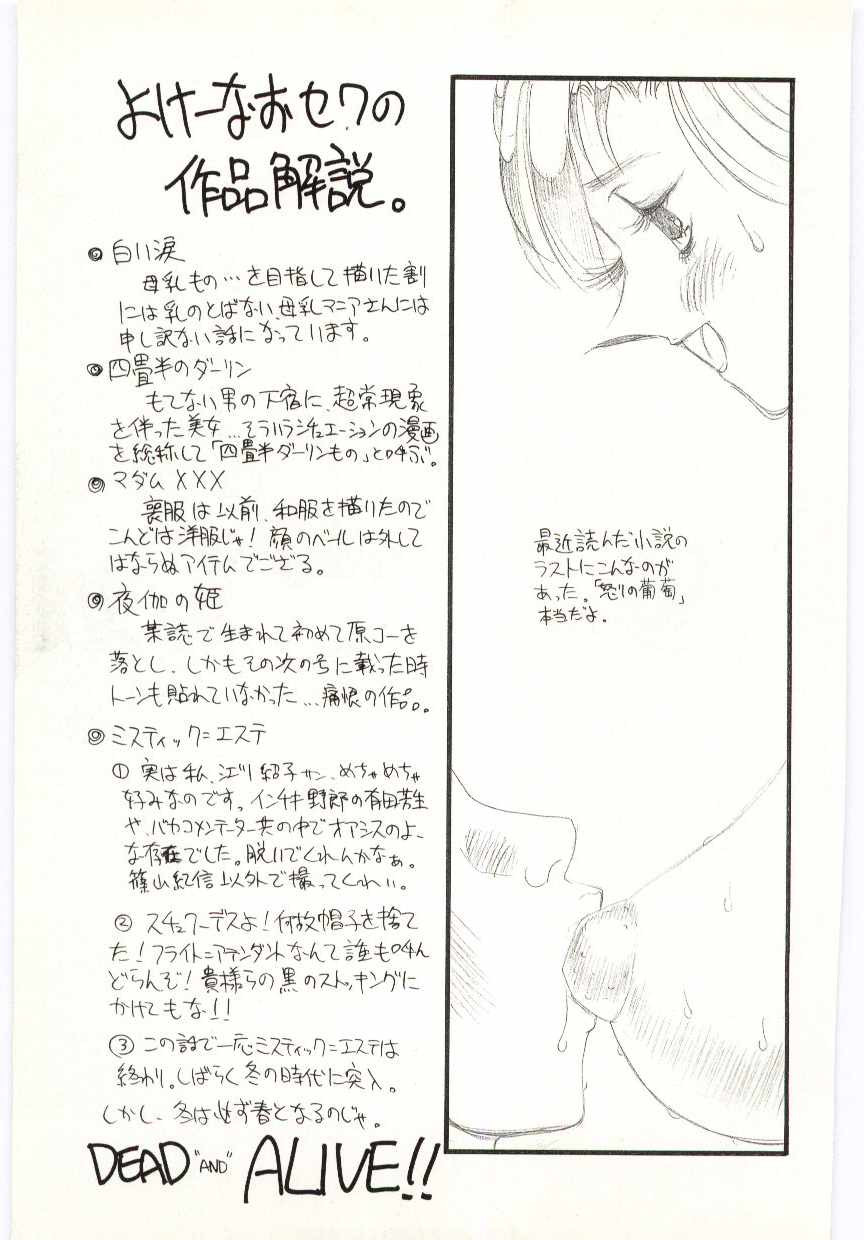 よけーなおセワの
作品解説。
◎ 白い涙
母乳もの…を目指して描いた割
には乳のとばない、母乳マニアさんには
申し訳ない話になっています。
◎ 四畳半のダーリン
もてない男の下宿に、超常現象
を伴った美女…そういうシチュエーションの漫画
を総称して「四畳半ダーリンもの」と呼ぶ。
◎ マダムXXX
喪服は以前、和服を描いたので
こんどは洋服じゃ!顔のベールは外して
はならぬアイテムでござる。
◎ 夜伽の姫
某誌で生まれて初めて原コーを
落とし、しかもその次の号に載った時
トーンも貼れていなかった…痛恨の作品。
◎ ミスティック=エステ
① 実は私、江川紹子サン、めちゃめちゃ
好みなのです。インチキ野郎の有田芳生
や、バカコメンテーター共の中でオアシスのよー
な存在でした。脱いでくれんかなぁ。
篠山紀信以外で撮ってくれい。
② スチュワーデスよ!何故帽子を捨て
た!フライト=アテンダントなんて誰も呼ん
どらんぞ!貴様らの黒のストッキングに
かけてもな!!
③ この話で一応ミスティック=エステは
終わり。しばらく冬の時代に突入。
しかし、冬は必ず春となるのじゃ。
DEAD "AND" ALIVE!!
最近読んだ小説の
ラストにこんなのが
あった。「怒りの葡萄」
本当だよ.